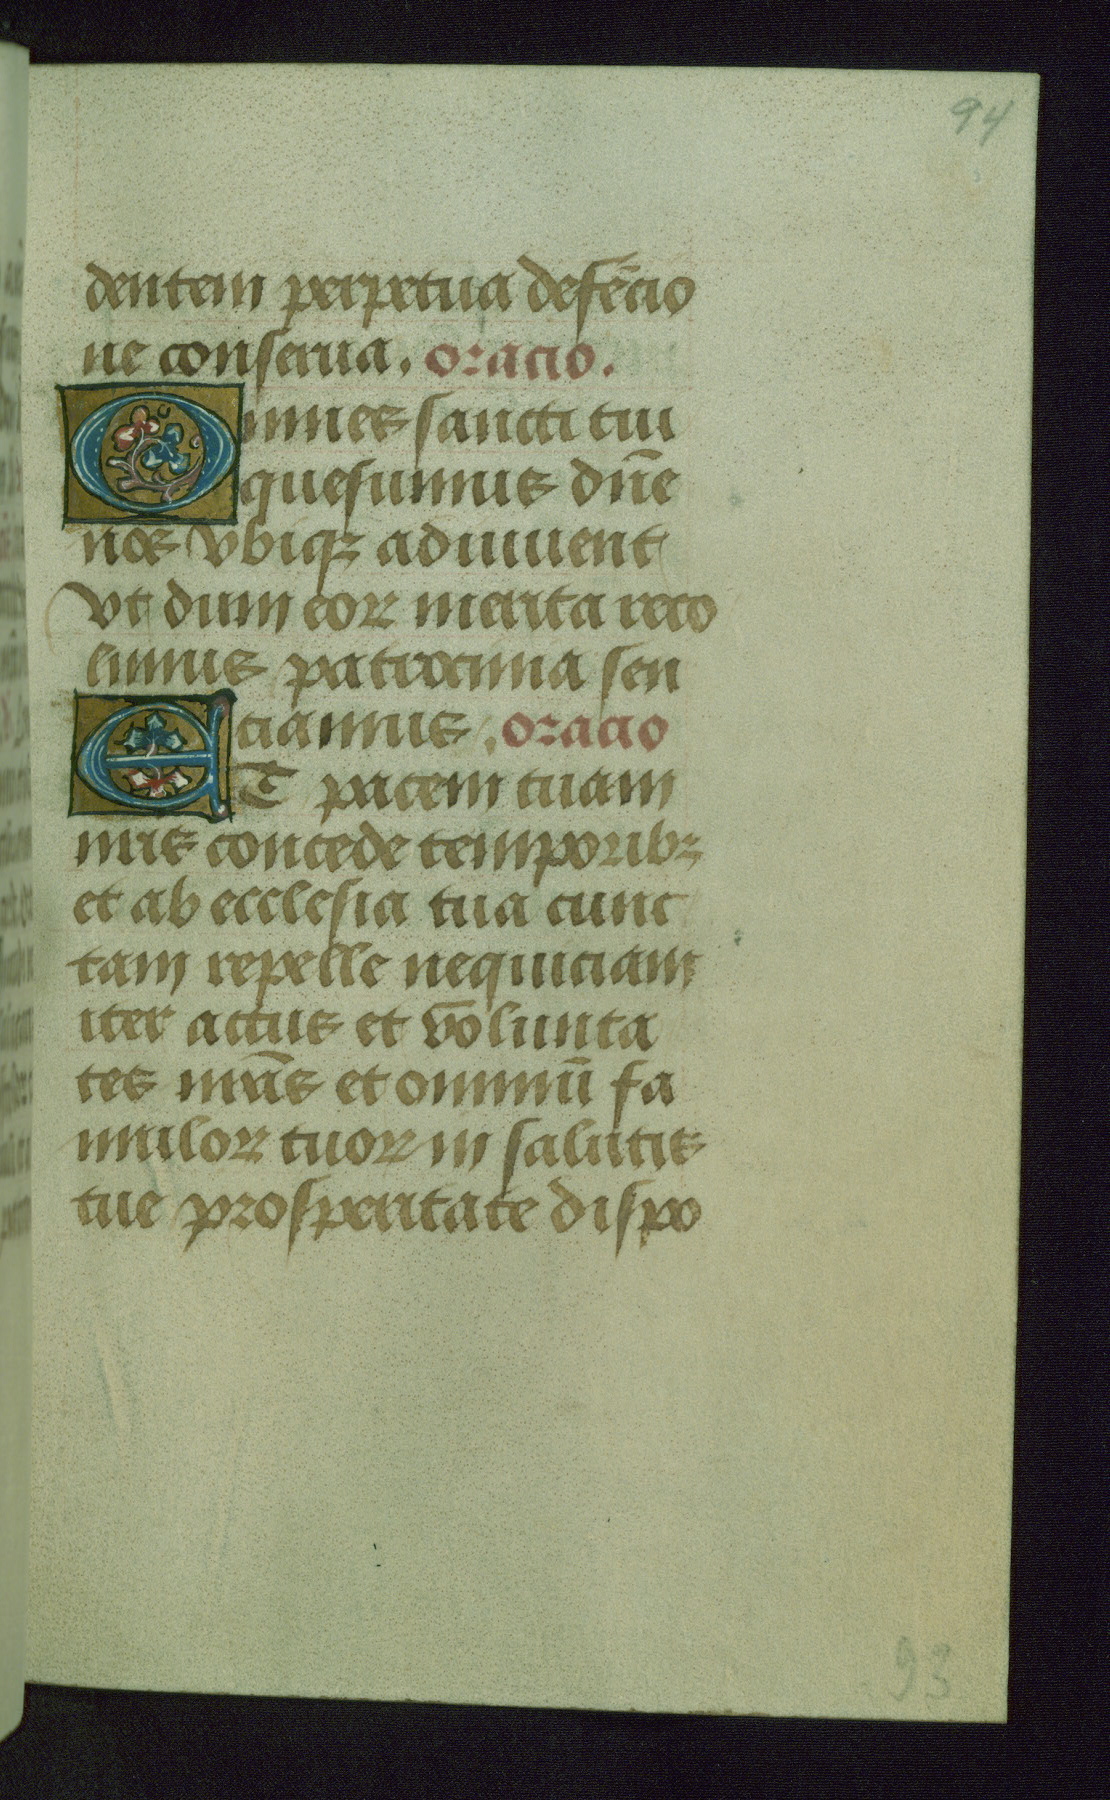 94
dentem perpetua defēcio
ne conserua. oracio.
Omnes sancti tui
quesumus dn̄e
nos vbiqꝫ adiuuent
vt dum eoꝝ merita reco
limus patrocinia sen
ciamus. oracio
ET pacem tuam
nris concede temporibꝫ
et ab ecclesia tua cunc
tam repelle nequiciam
iter actus et volunta
tes nrās et omniū fa
muloꝝ tuoꝝ in salutis
tue prosperitate dispo
93